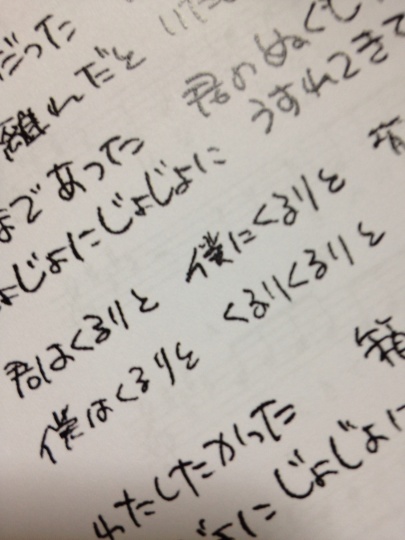 だった
離れだと
君のぬくも
うすれてきて
まであった
じょじょにじょじょに
僕にくるりと
君はくるりと
くるりくるりと
僕はくるりと
箱
わたしたかった
じょじょに